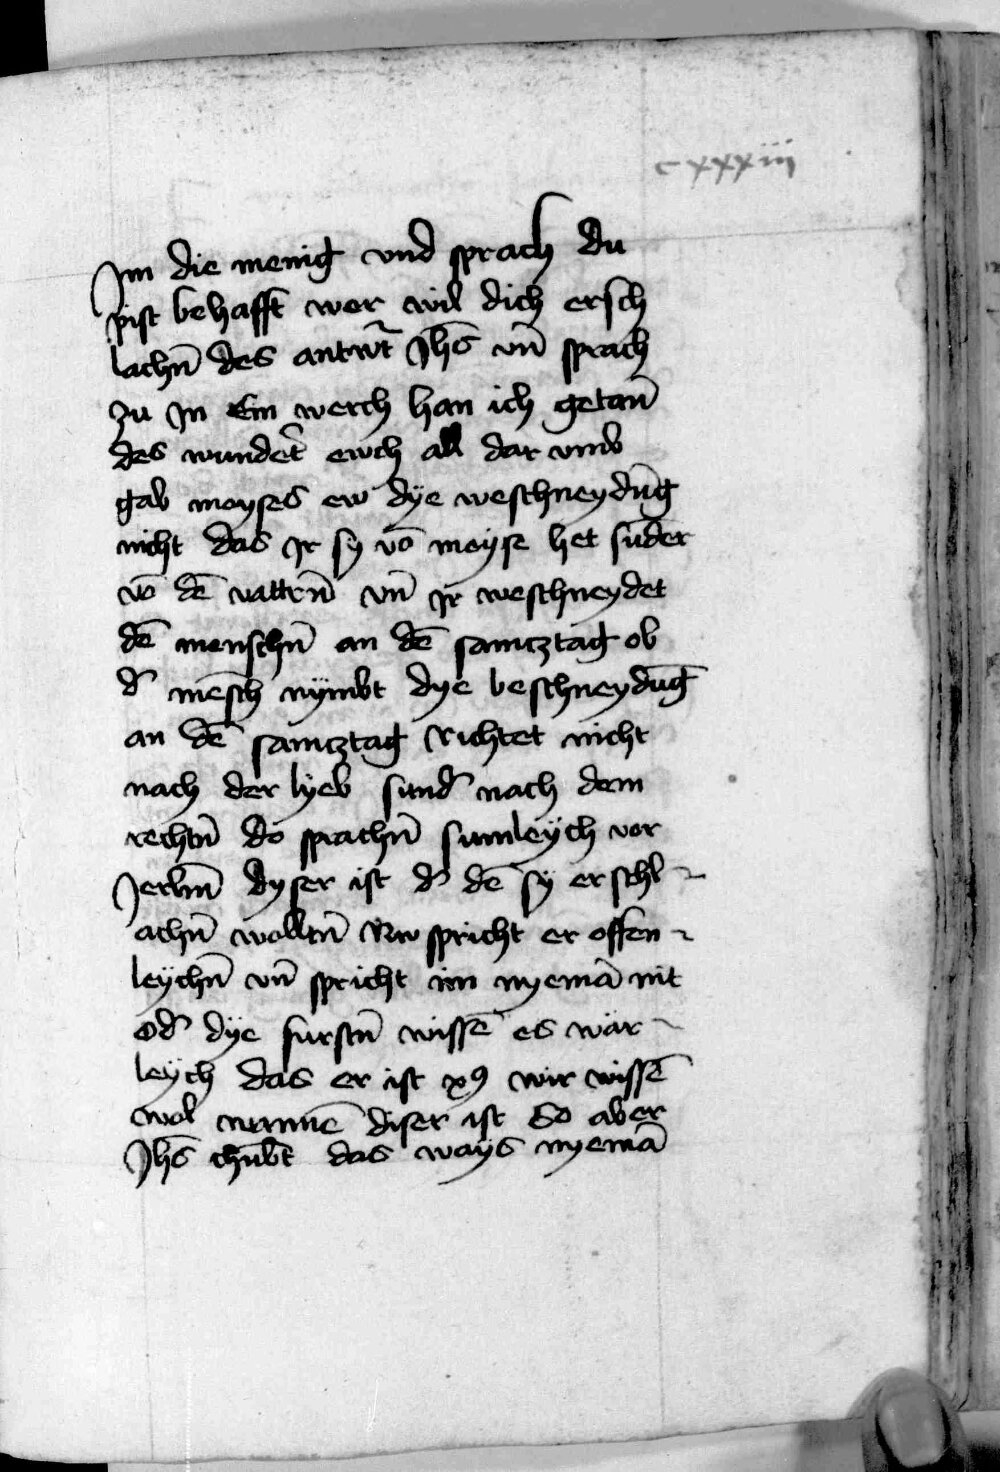 cxxxiii
Jm die menig vnd sprach du
pist behafft wer wil dich ersch
lachn̄ des antwrt̄ Jhs̄ vn̄ sprach
zu Jn Ein werch han ich getan̄
des wundert̄ ewch all dar vmb
gab moyses ew dÿe weschneydūg
nicht das Jr sy vō moyse het sūder
vō dē vattrn̄ vn̄ Jr weschneydet
dē menschn̄ an dē samcztag ob
d̄ mēsch nÿmbt dye beschneydūg
an dē samcztag Richtet nicht
nach der lyeb sund̄ nach dem
rechtn̄ do sprachn̄ sumleÿch vor
Jerlm̄ dyser ist d̄ dē sy erschl
achn̄ wolltn̄ Nw spricht er offen
leÿchn̄ vn̄ spricht im nyemā nit
od̄ dÿe furstn̄ wissē es war
leÿch das er ist xp̄s wir wissē
wol wannē diser ist So aber
Jhs̄ chūbt das ways nyemā